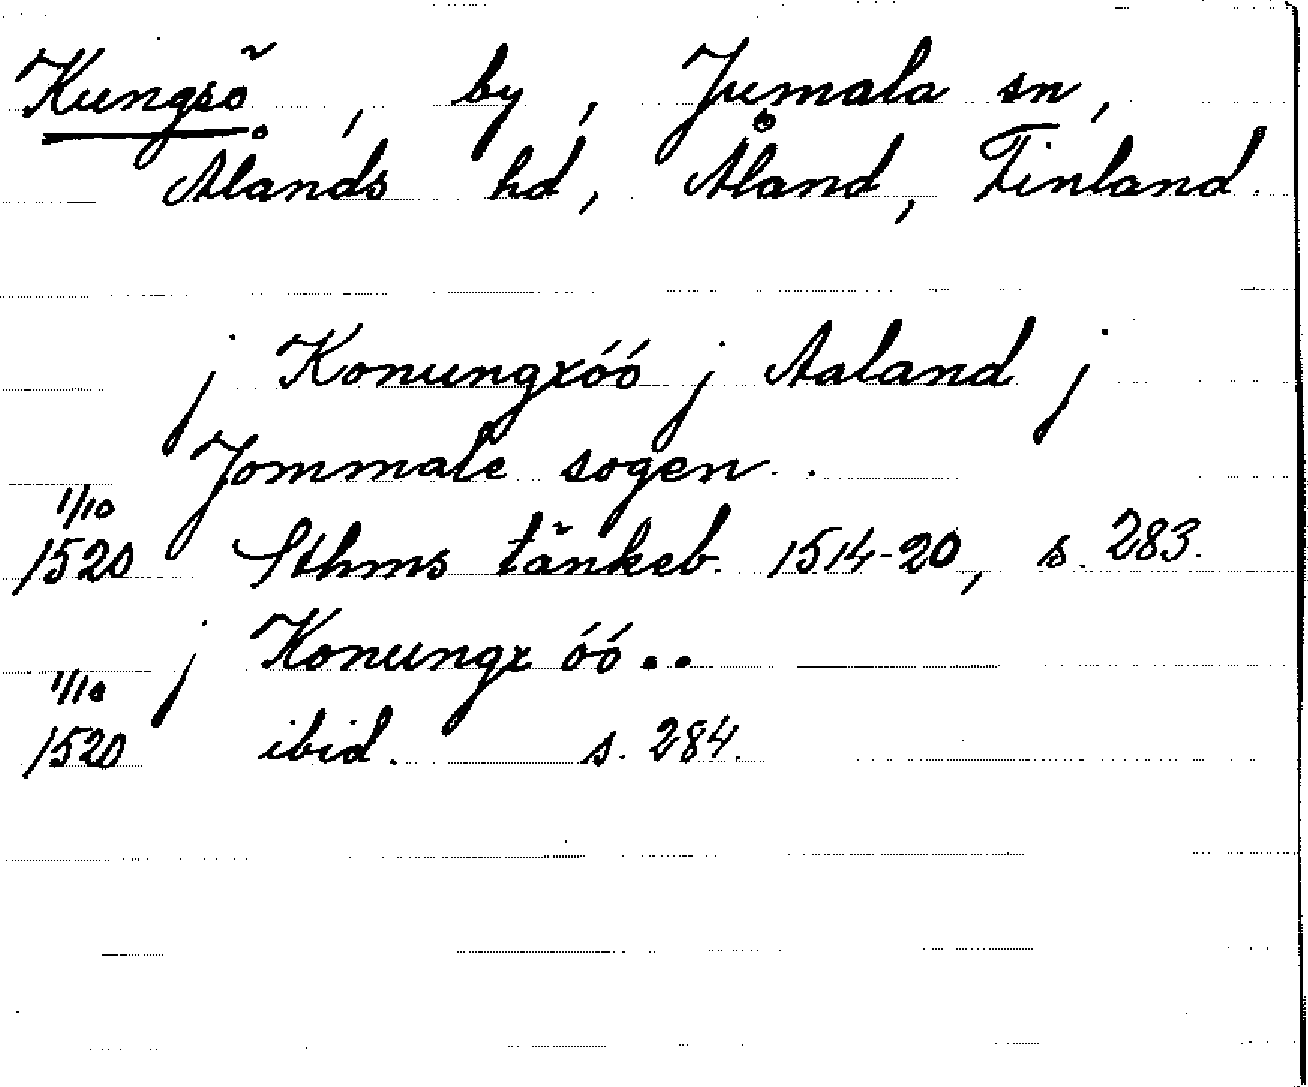 Kungsö, by, Jumala sn,
Ålands hd, Åland, Finland.
j Konungxóó j Aaland j
Jommale sogen..
1/10
1520 Sthms tänkeb. 1514-20, s. 283.
j Konungx óó..
1/10
1520 ibid. s. 284.